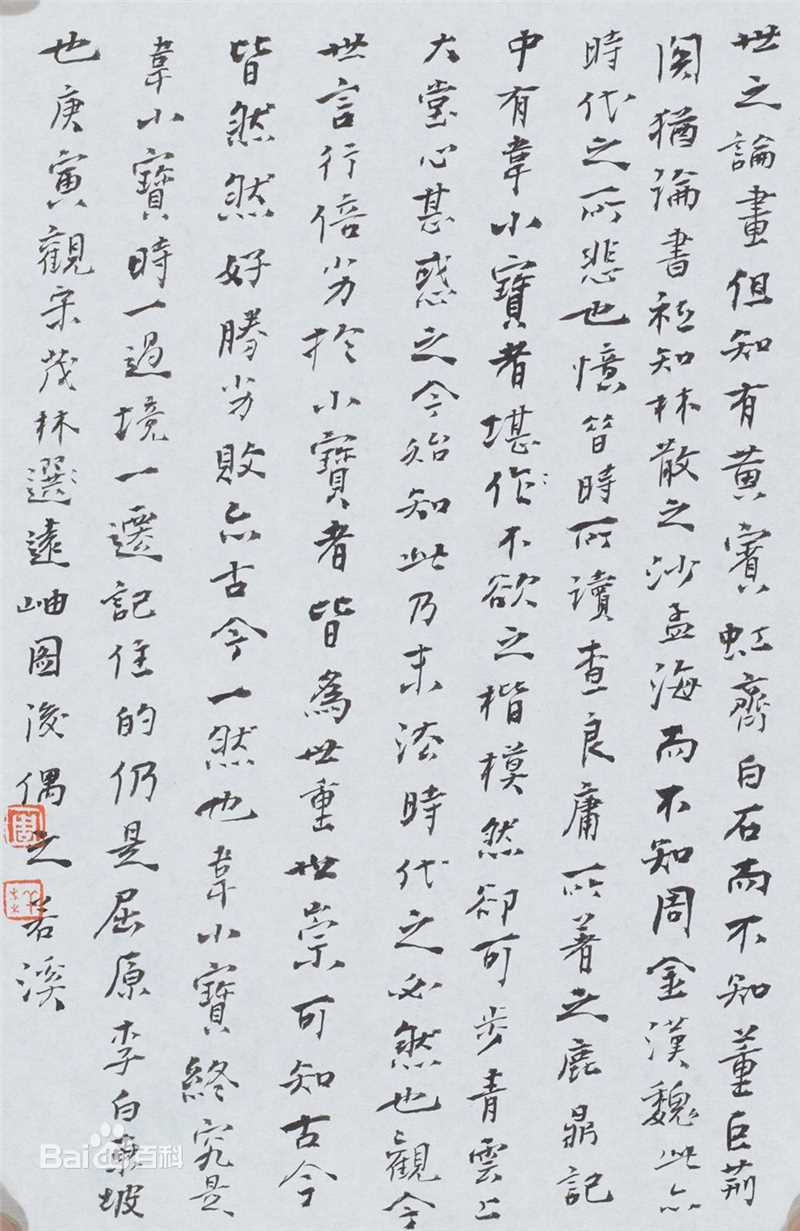 世之論畫但知有黄賓虹齊白石而不知董巨荊
関猶論書秪知林散之沙孟海而不知周金漢魏此亦
時代之所悲也憶昔時所讀查良庸所著之鹿鼎記
中有韋小寶者堪作不欲之楷模然卻可步青雲上
大堂心甚惑之今始知此乃末法時代之必然也觀今
世言行倍劣於小寶者皆為世重世崇可知古今
皆然然好勝劣敗亦古今一然也韋小寶終究是
韋小寶時一過境一遷記住的仍是屈原李白東坡
也庚寅觀宋茂林選遠岫圖後偶之若溪
Baidu百科